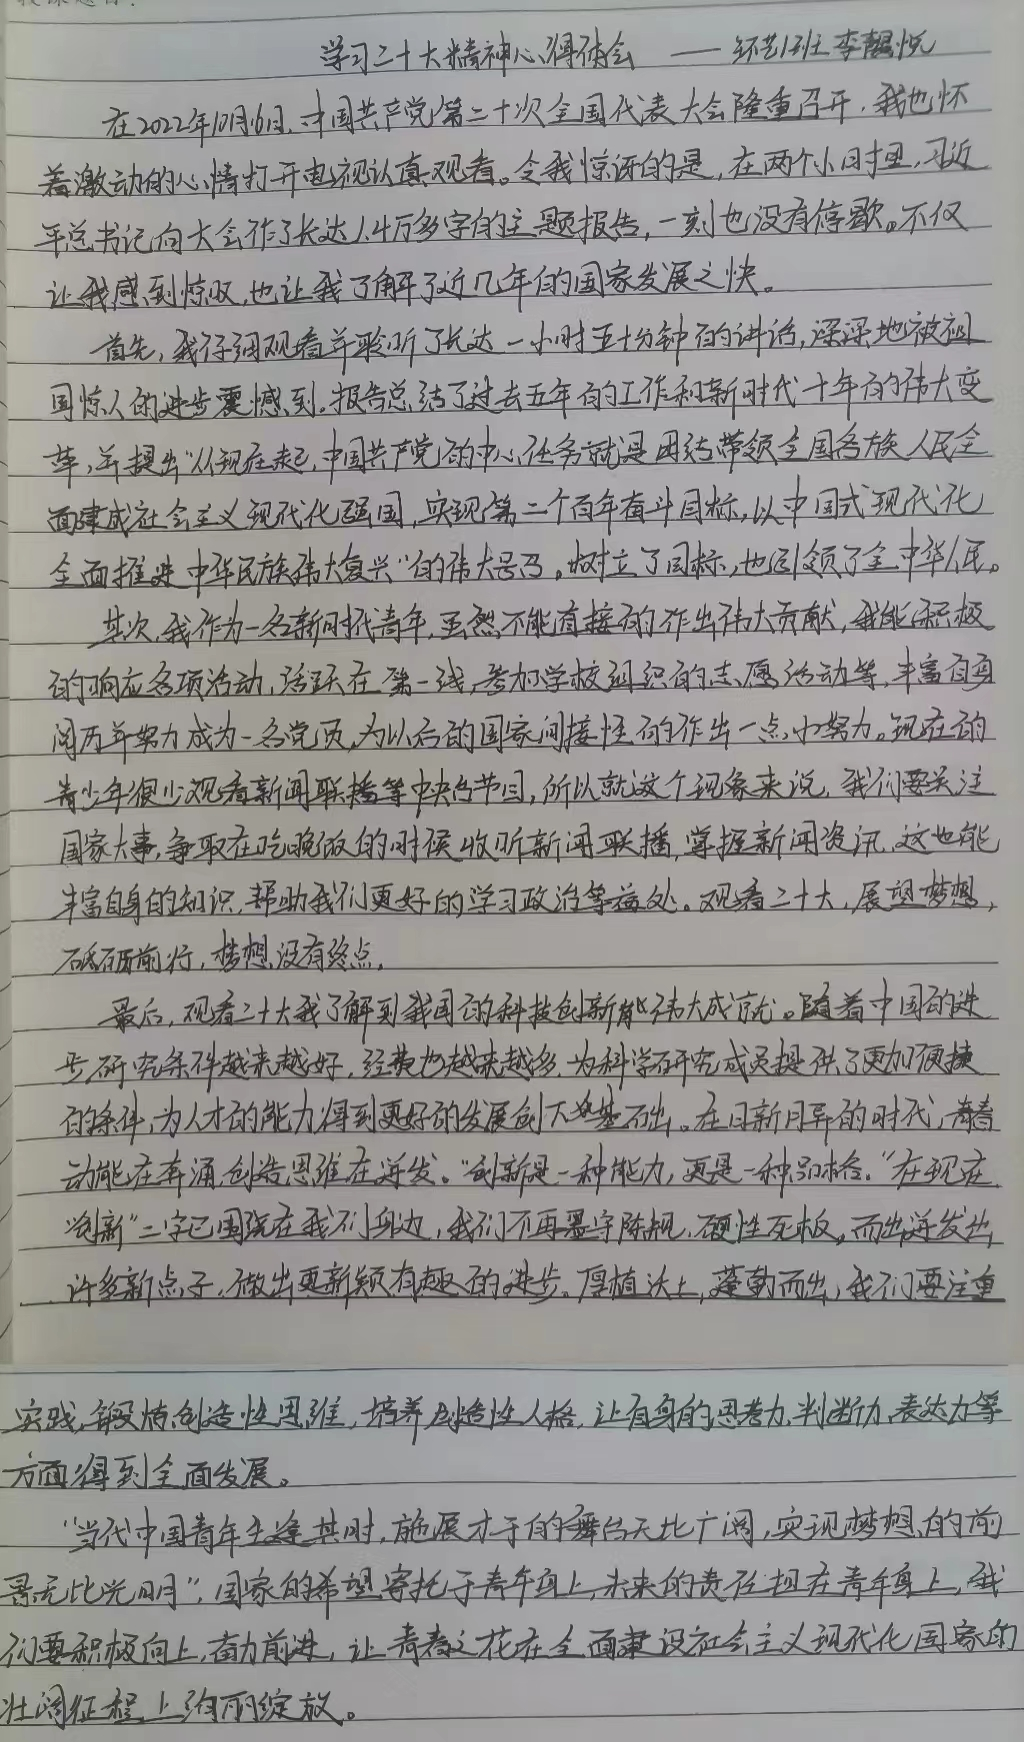 学习二十大精神心得体会 —— 环艺1班 李靓悦
在2022年10月16日,中国共产党第二十次全国代表大会隆重召开,我也怀
着激动的心情打开电视认真观看。令我惊讶的是,在两个小时里,习近
平总书记向大会作了长达1.4万多字的主题报告,一刻也没有停歇。不仅
让我感到惊叹,也让我了解了近几年的国家发展之快。
首先,我仔细观看并聆听了长达一小时五十分钟的讲话,深深地被祖
国惊人的进步震憾到。报告总结了过去五年的工作和新时代十年的伟大变
革,并提出“从现在起,中国共产党的中心任务就是团结带领全国各族人民全
面建成社会主义现代化强国,实现第二个百年奋斗目标,以中国式现代化
全面推进中华民族伟大复兴”的伟大号召。树立了目标,也引领了全中华人民。
其次,我作为一名新时代青年,虽然不能直接的作出伟大贡献,我能积极
的响应各项活动,活跃在第一线,参加学校组织的志愿活动等,丰富自身
阅历并努力成为一名党员,为以后的国家间接性的作出一点小努力。现在的
青少年很少观看新闻联播等中央台节目,所以就这个现象来说,我们要关注
国家大事,争取在吃晚饭的时候收听新闻联播,掌握新闻资讯,这也能
丰富自身的知识,帮助我们更好的学习政治等益处。观看二十大,展望梦想,
砥砺前行,梦想没有终点。
最后,观看二十大我了解到我国的科技创新伟大成就。随着中国的进
步,研究条件越来越好,经费也越来越多,为科学研究成员提供了更加便捷
的条件,为人才的能力得到更好的发展创下基础。在日新月异的时代,青春
动能在奔涌,创造思维在迸发。“创新是一种能力,更是一种品格。”在现在
“创新”二字已围绕在我们身边,我们不再墨守陈规,硬性死板,而出迸发出
许多新点子,做出更新颖有趣的进步。厚植沃土,蓬勃而出,我们要注重
实践,锻炼创造性思维,培养创造性人格,让自身的思考力,判断力,表达力等
方面得到全面发展。
“当代中国青年生逢其时,施展才干的舞台无比广阔,实现梦想的前
景无比光明”,国家的希望寄托于青年身上,未来的责任担在青年身上,我
们要积极向上,奋力前进,让青春之花在全面建设社会主义现代化国家的
壮阔征程上绚丽绽放。